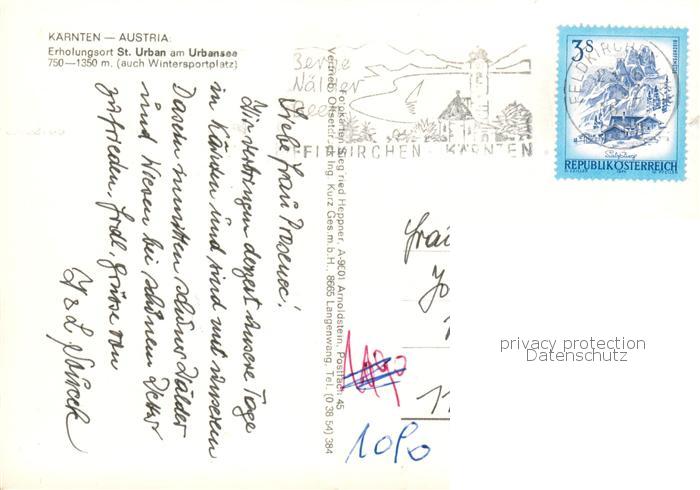 KÄRNTEN — AUSTRIA:
Erholungsort St. Urban am Urbansee
750—1350 m. (auch Wintersportplatz)
Liebe Frau Prosenec!
Wir verbringen derzeit unsere Tage
in Kärnten und sind mit unserem
Dasein inmitten schöner Wälder
und Wiesen bei schönem Wetter
zufrieden. Herzl. Grüsse von
Fotokarten Siegfried Heppner, A-9601 Arnoldstein, Postfach 45
Vertrieb: Offsetdruck Ing. Kurz Ges.m.b.H., 8665 Langenwang, Tel. (0 38 54) 384
Berge
Wälder
Seen
FELDKIRCHEN KÄRNTEN
3S
FELDKIRCHEN
REPUBLIK ÖSTERREICH
Frau
1190
1090
privacy protection
Datenschutz